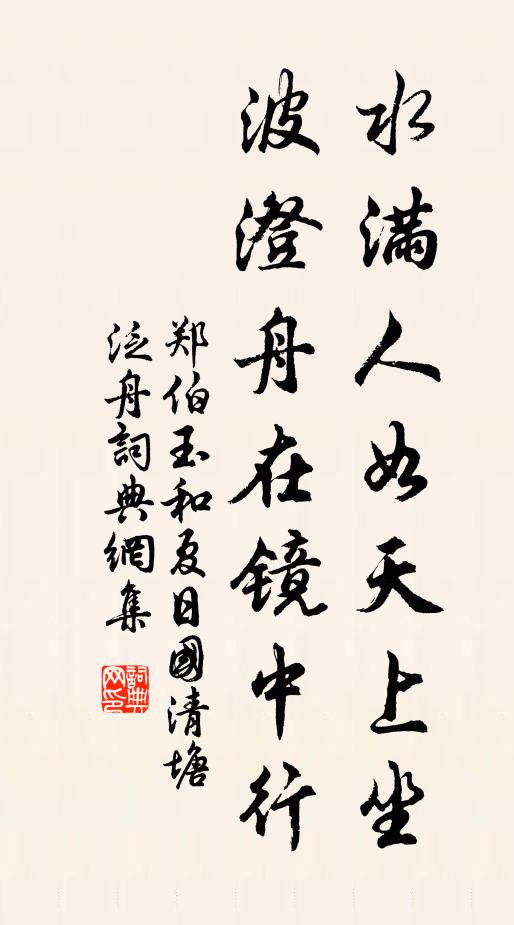 水满人如天上坐
波澄舟在镜中行
郑伯玉和夏日國清塘
泛舟詞典網集
詞典
网印